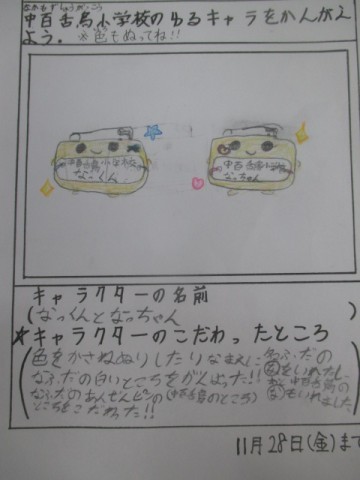 なかもずしょうがっこう
中百舌鳥小学校のゆるキャラをかんがえ
よう。※色もぬってね!!
中百舌鳥小学校
なっくん
中百舌鳥小学校
なっちゃん
キャラクターの名前
(なっくんとなっちゃん)
★キャラクターのこだわったところ
(色をかさねぬりしたり
なふだの白いところをがんばった!!
なふだのあんぜんピンの(中百舌鳥のところ)
ところをこだわった!!
名ふだの
をいれたし
中百舌鳥の
もいれました)
11月28日(金)まで